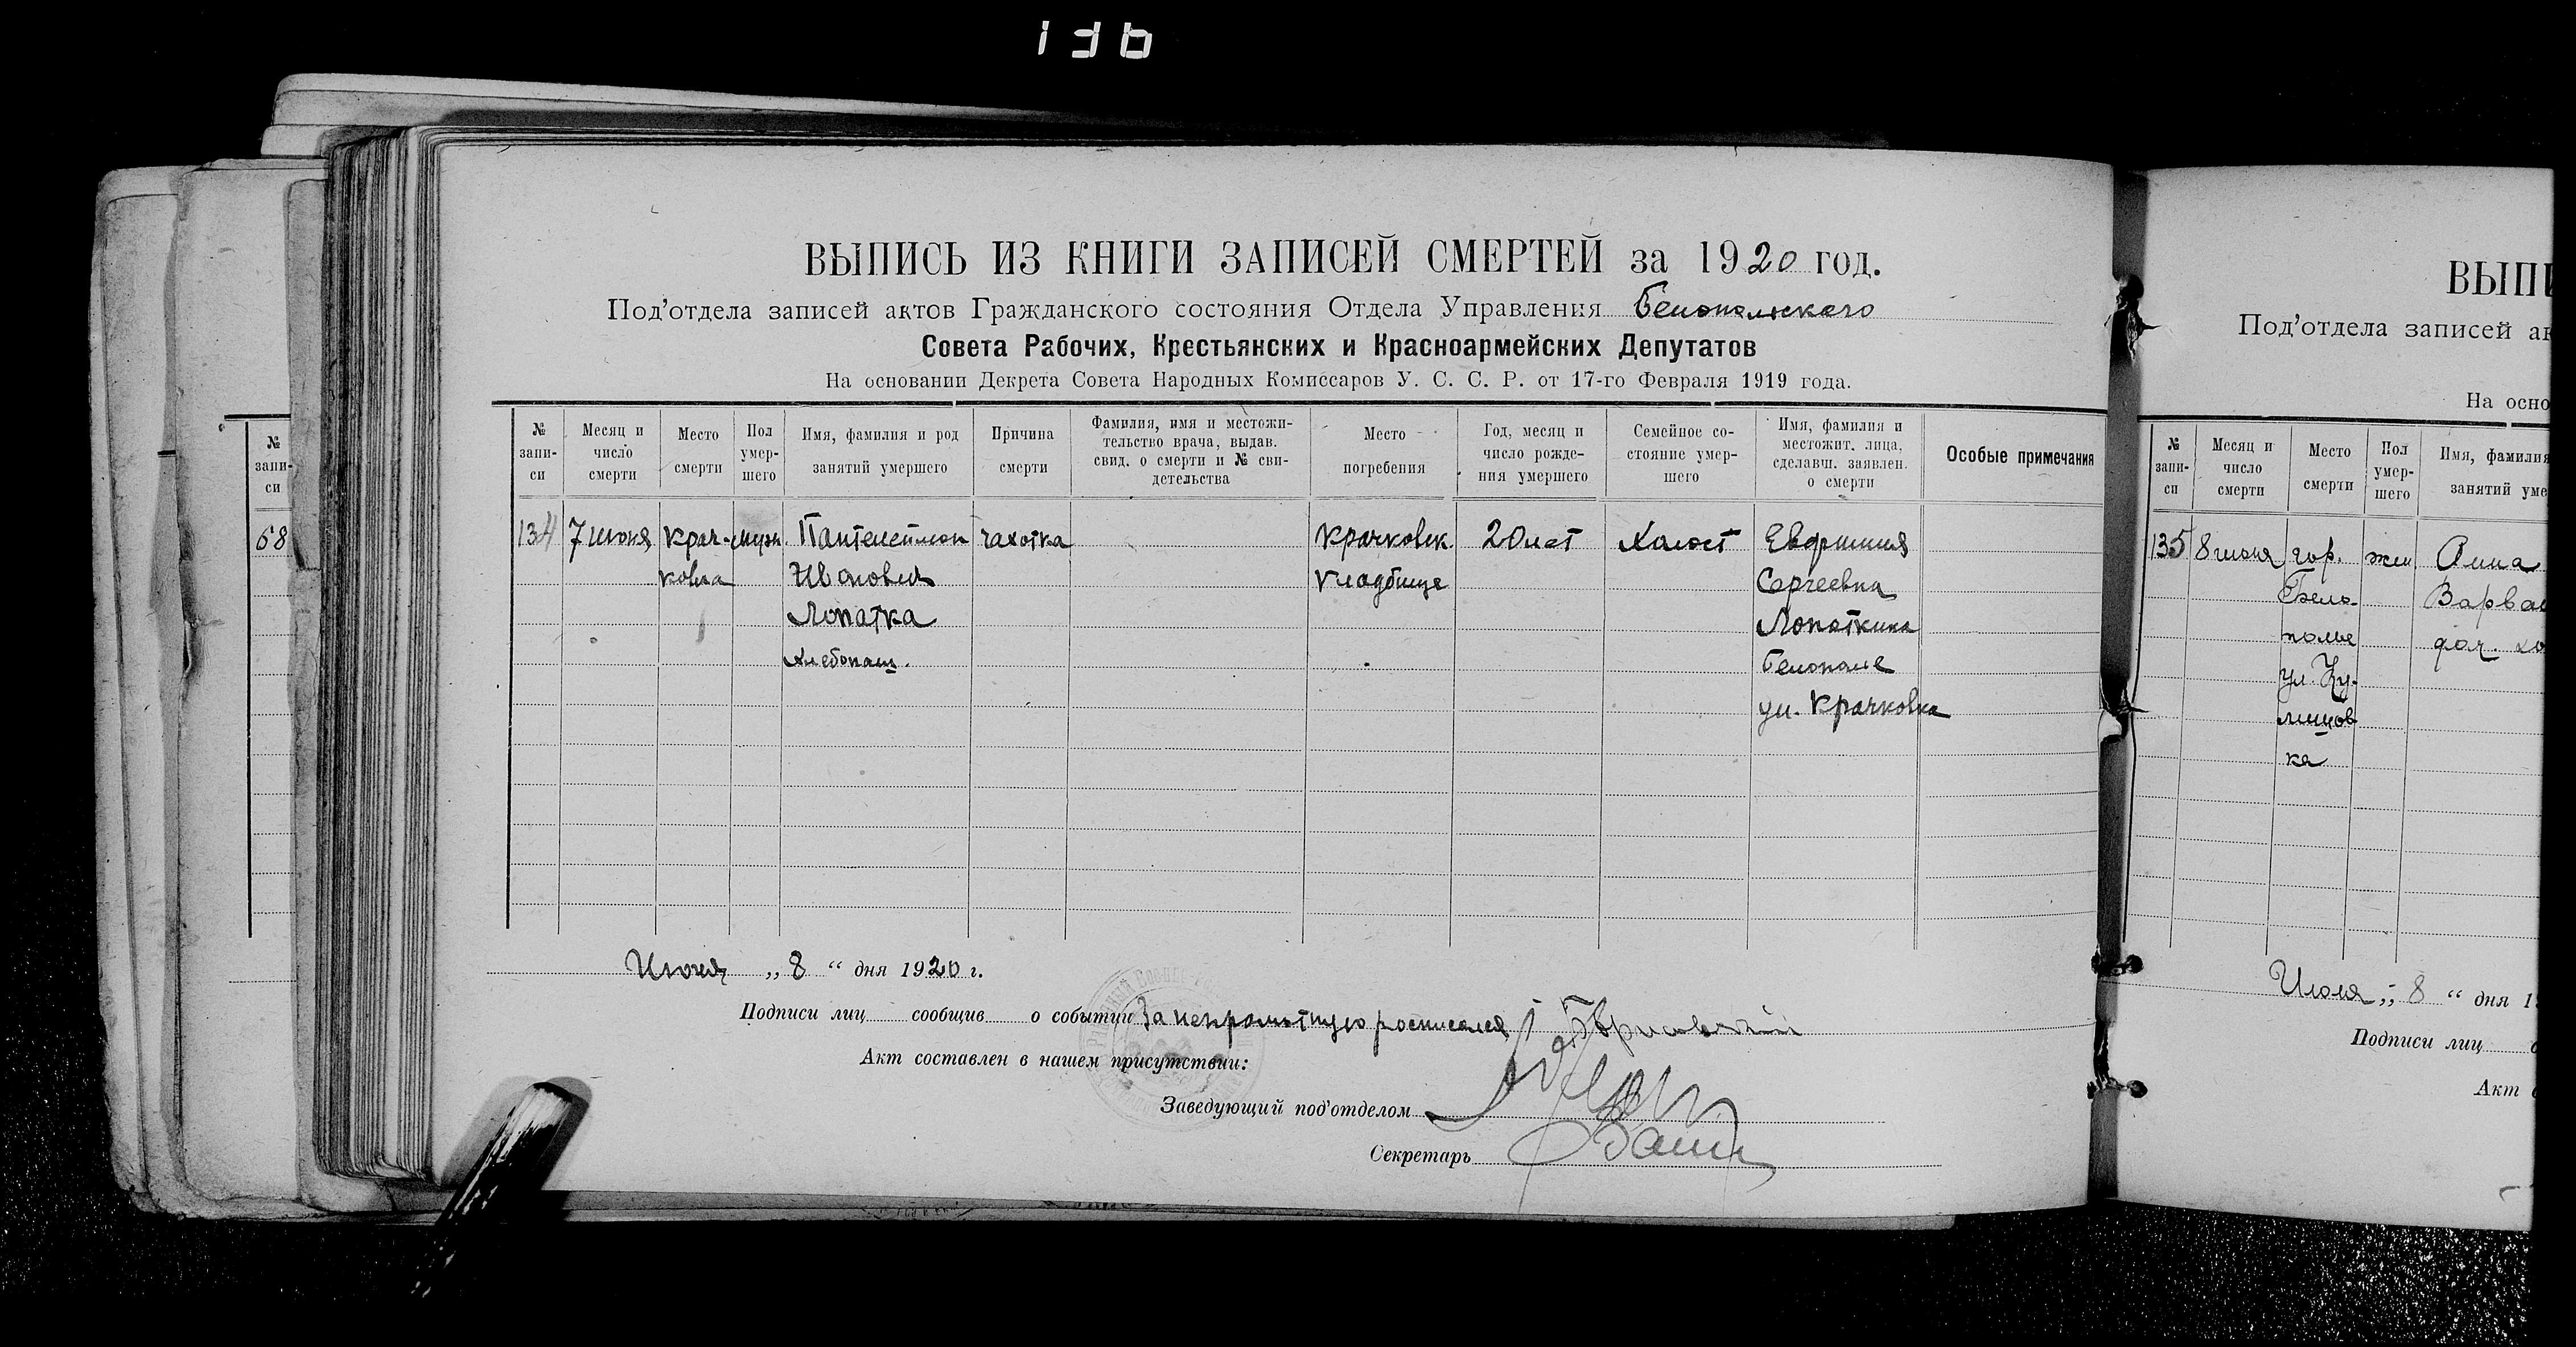 136
ВЫПИСЬ ИЗ КНИГИ ЗАПИСЕЙ СМЕРТЕЙ за 1920 год.
Под'отдела записей актов Гражданского состояния Отдела Управления Белопольского
Совета Рабочих, Крестьянских и Красноармейских Депутатов
На основании Декрета Совета Народных Комиссаров У. С. С. Р. от 17-го Февраля 1919 года.
№ запи-
си
Месяц и
число
смерти
Место
смерти
Пол
умер-
шего
Имя, фамилия и род
занятий умершего
Причина
смерти
Фамилия, имя и местожи-
тельство врача, выдав.
свид. о смерти и № сви-
детельства
Место
погребения
Год, месяц и
число рожде-
ния умершего
Семейное со-
стояние умер-
шего
Имя, фамилия и
местожит. лица,
сделавш. заявлен.
о смерти
Особые примечания
134
7 июня
Крач-
ковка
мужч.
Пантелеймон
Иванович
Лопатка
хлебопаш.
чахотка
Крачковск
кладбище
20 лет
Холост
Евфимия
Сергеевна
Лопаткина
Белополе
ул. Крачковка
Июня „ 8 “ дня 1920 г.
Подписи лиц сообщив о событии За неграмотную росписался
Акт составлен в нашем присутствии:
Заведующий под'отделом
Секретарь
№
запи-
си
68
ВЫПИ
Под'отдела записей ак
На осно
№
запи-
си
Месяц и
число
смерти
Место
смерти
Пол
умер-
шего
Имя, фамилия
занятий уме
135
8 июня
гор.
Бело-
полье
ул.
ка
жен.
Анна
Варва
Июня „ 8 “ дня 1
Подписи лиц
Акт